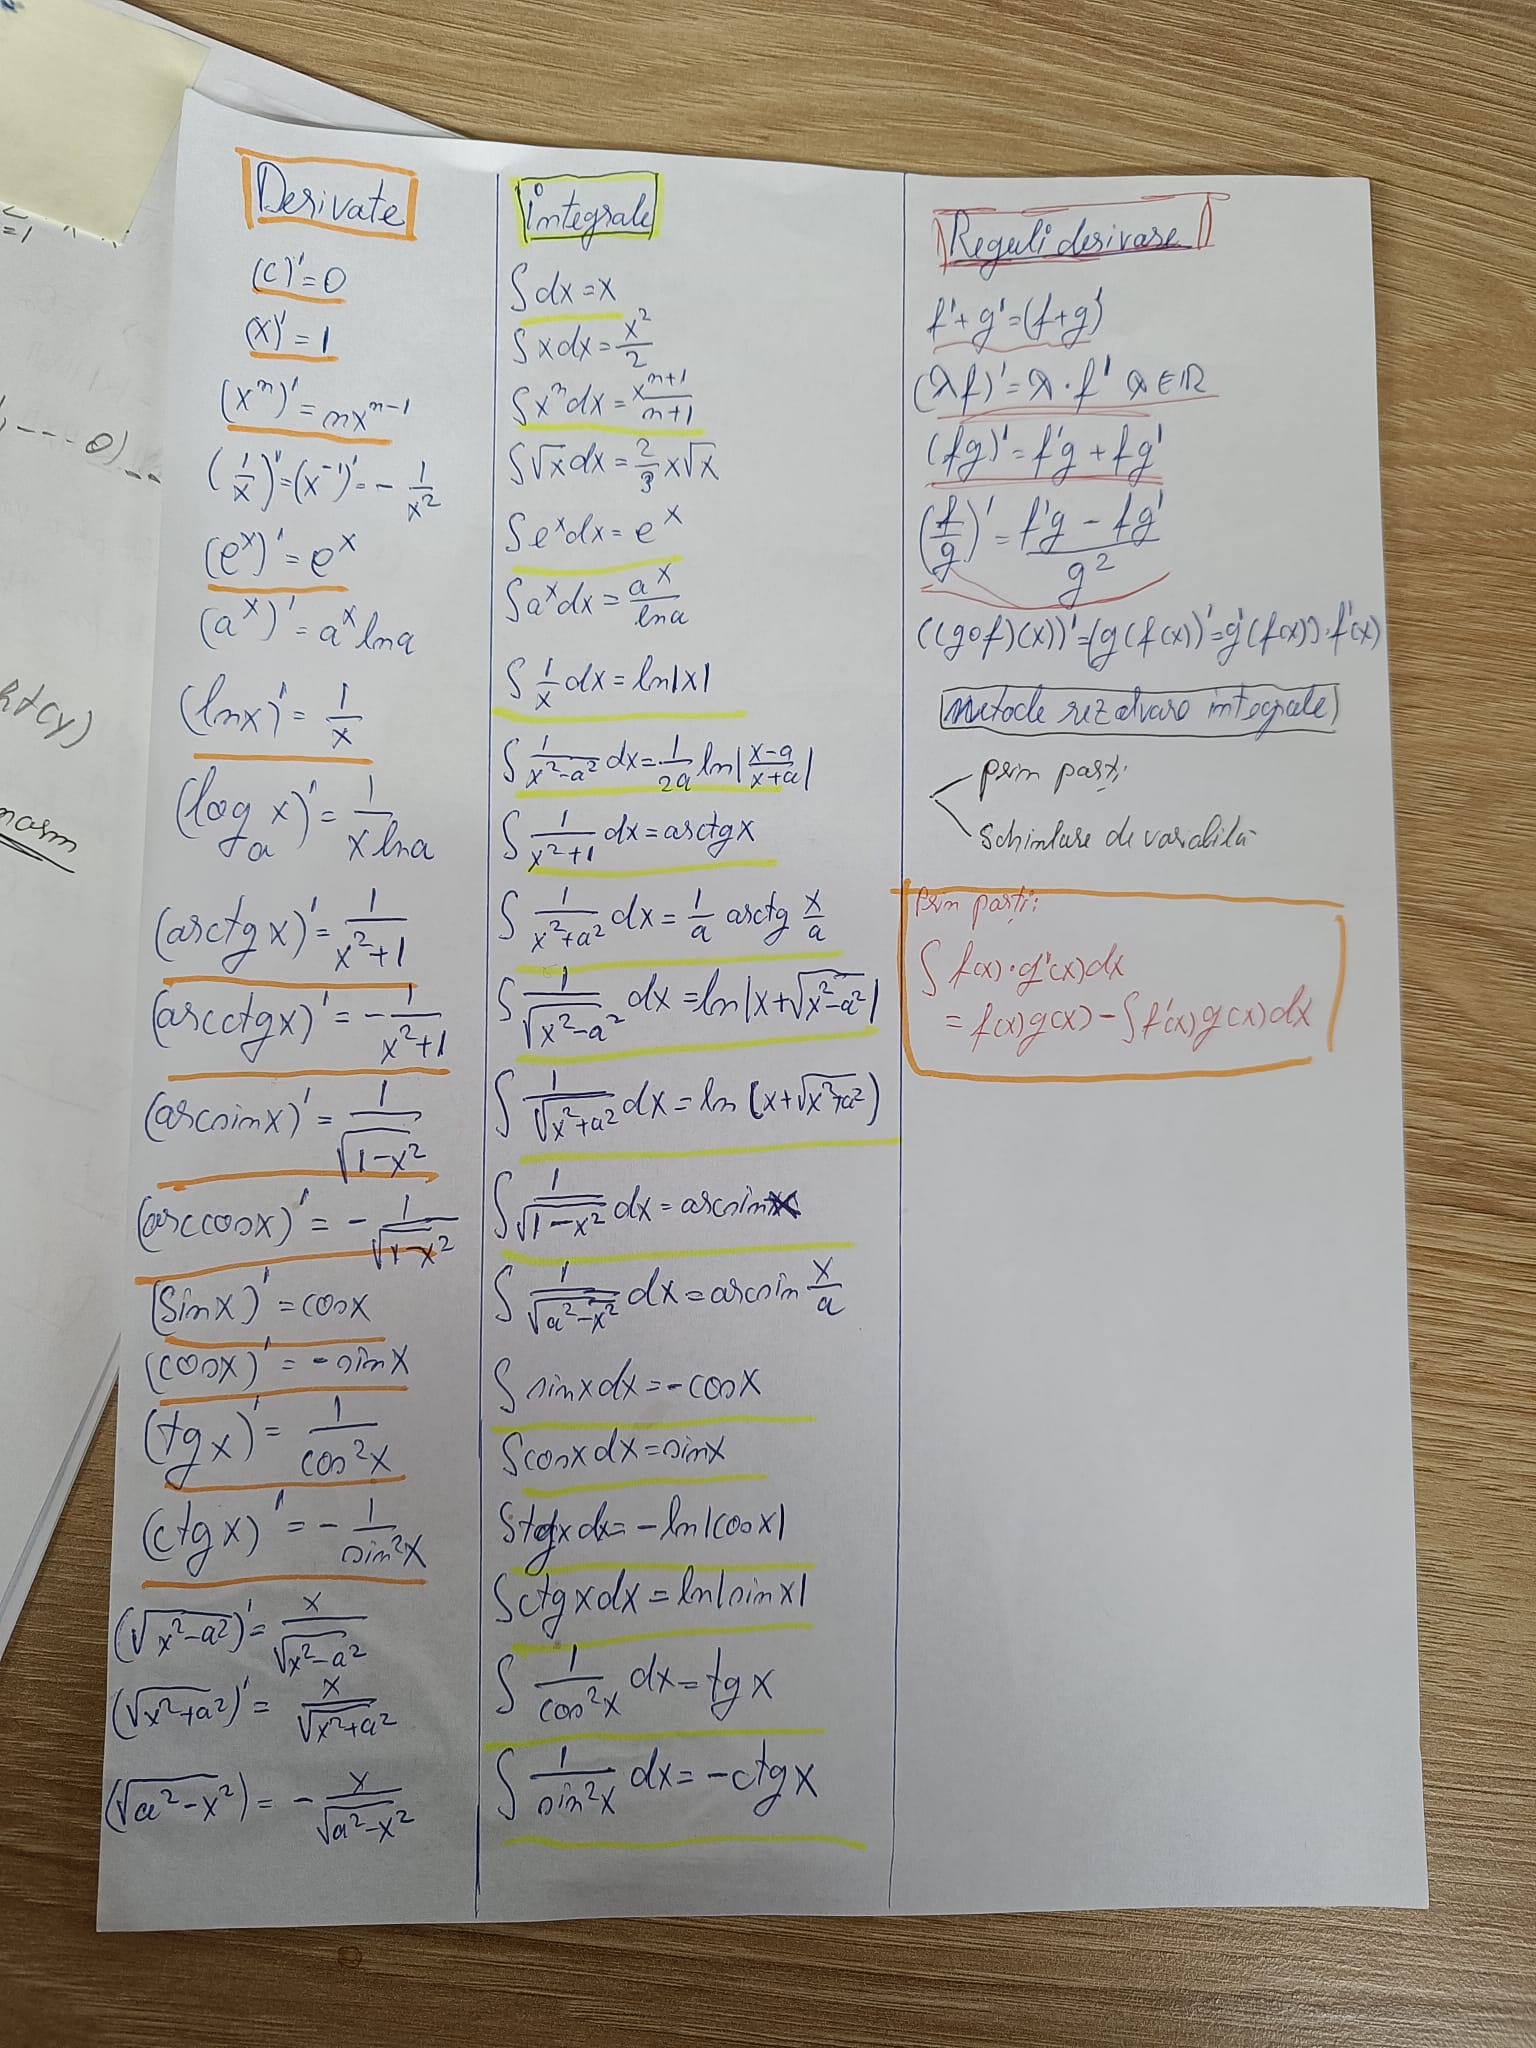 Derivate
(c)' = 0
(x)' = 1
(xⁿ)' = nxⁿ⁻¹
(1/x)' = (x⁻¹)' = - 1/x²
(eˣ)' = eˣ
(aˣ)' = aˣ ln a
(ln x)' = 1/x
(logₐ x)' = 1/(x ln a)
(arctg x)' = 1/(x²+1)
(arcctg x)' = - 1/(x²+1)
(arcsin x)' = 1/√(1-x²)
(arccos x)' = - 1/√(1-x²)
(sin x)' = cos x
(cos x)' = - sin x
(tg x)' = 1/cos²x
(ctg x)' = - 1/sin²x
(√(x²-a²))' = x/√(x²-a²)
(√(x²+a²))' = x/√(x²+a²)
(√(a²-x²)) = - x/√(a²-x²)
integrale
∫ dx = x
∫ x dx = x²/2
∫ xⁿ dx = xⁿ⁺¹/(n+1)
∫ √x dx = 2/3 x√x
∫ eˣ dx = eˣ
∫ aˣ dx = aˣ/ln a
∫ 1/x dx = ln|x|
∫ 1/(x²-a²) dx = 1/2a ln|(x-a)/(x+a)|
∫ 1/(x²+1) dx = arctg x
∫ 1/(x²+a²) dx = 1/a arctg x/a
∫ 1/√(x²-a²) dx = ln|x+√(x²-a²)|
∫ 1/√(x²+a²) dx = ln (x+√(x²+a²))
∫ 1/√(1-x²) dx = arcsin x
∫ 1/√(a²-x²) dx = arcsin x/a
∫ sin x dx = - cos x
∫ cos x dx = sin x
∫ tg x dx = - ln|cos x|
∫ ctg x dx = ln|sin x|
∫ 1/cos²x dx = tg x
∫ 1/sin²x dx = - ctg x
Reguli derivare
f' + g' = (f+g)'
(λf)' = λ · f' λ ∈ ℝ
(fg)' = f'g + fg'
(f/g)' = (f'g - fg')/g²
((g∘f)(x))' = (g(f(x))' = g'(f(x)) · f'(x)
metode rezolvare integrale
prin părți
schimbare de variabilă
Prin părți:
∫ f(x) · g'(x) dx
= f(x)g(x) - ∫ f'(x) g(x) dx